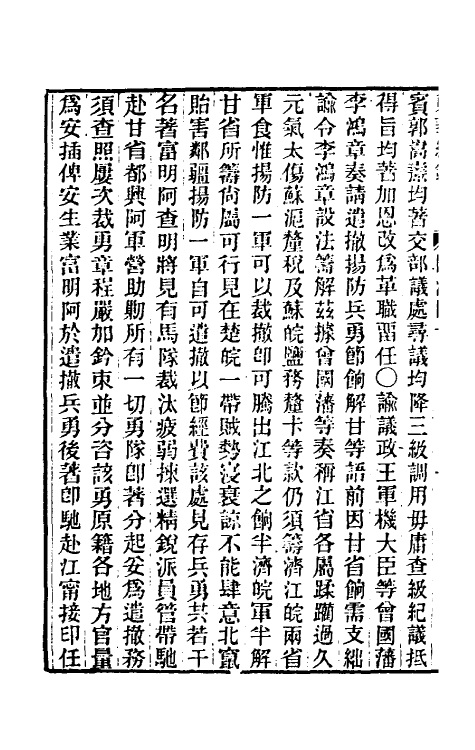 賓郭嵩燾均著交部議處尋議均降三級調用毋庸查級紀議抵
得旨均著加恩改爲革職留任〇諭議政王軍機大臣等曾國藩
李鴻章奏請遣撤揚防兵勇節餉解甘等語前因甘省餉需支絀
諭令李鴻章設法籌解茲據曾國藩等奏稱江省各屬蹂躪過久
元氣太傷蘇滬釐稅及蘇皖鹽務釐卡等款仍須籌濟江皖兩省
軍食惟揚防一軍可以裁撤卽可騰出江北之餉半濟皖軍半解
甘省所籌尙屬可行見在楚皖一帶賊勢寖衰諒不能肆意北竄
貽害鄰疆揚防一軍自可遣撤以節經費該處見存兵勇共若干
名著富明阿查明將見有馬隊裁汰疲弱揀選精銳派員管帶馳
赴甘省都興阿軍營助勦所有一切勇隊卽著分起妥爲遣撤務
須查照屢次裁勇章程嚴加鈐束並分咨該勇原籍各地方官量
爲安插俾安生業富明阿於遣撤兵勇後著卽馳赴江甯接印任